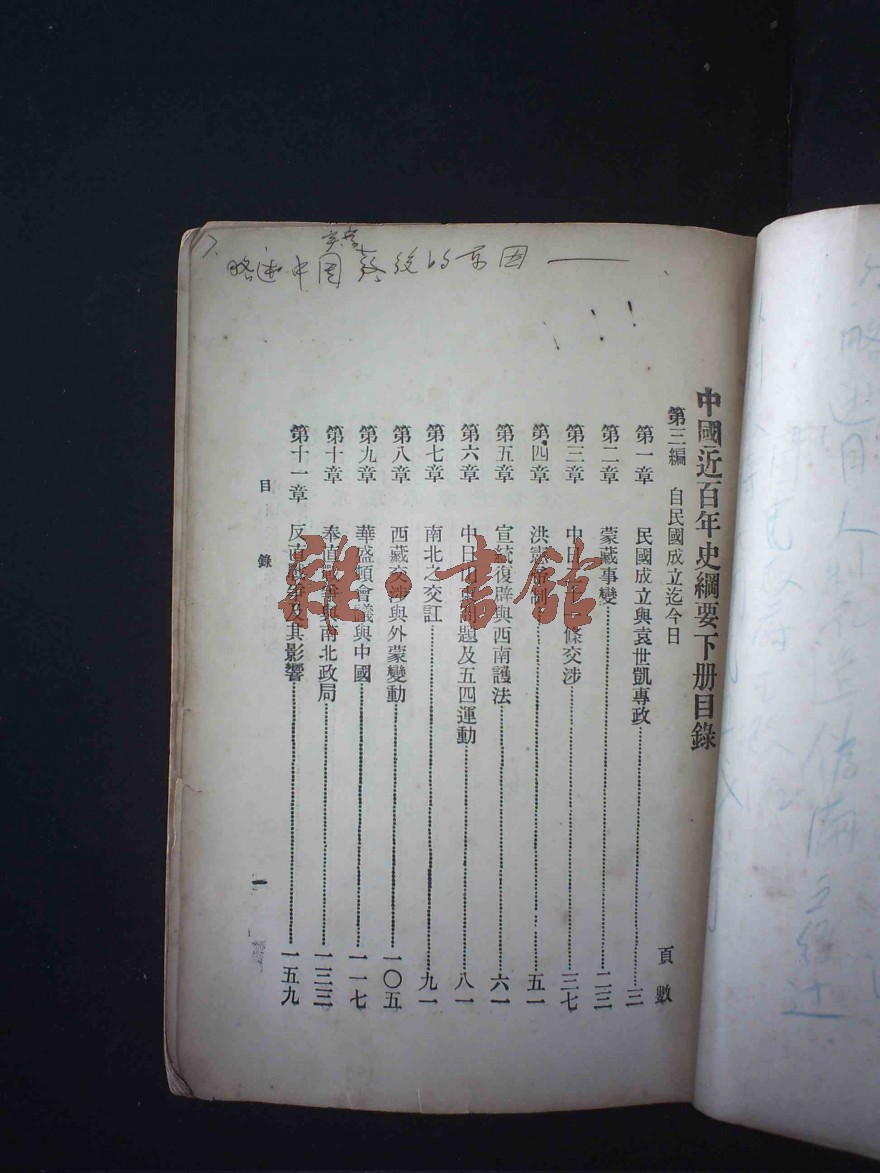 略述中国
中國近百年史綱要下册目錄
第三編 自民國成立迄今日
頁數
第一章 民國成立與袁世凱專政 三
第二章 蒙藏事變 二三
第三章 中日二十一條交涉 三七
第四章 洪憲帝制 五一
第五章 宣統復辟與西南護法 六一
第六章 中日山東問題及五四運動 八一
第七章 南北之交訌 九一
第八章 西藏交涉與外蒙變動 一〇五
第九章 華盛頓會議與中國 一一七
第十章 奉直戰爭與南北政局 一三三
第十一章 反直戰爭及其影響 一五九
目錄
一
雜·書館
略述日人